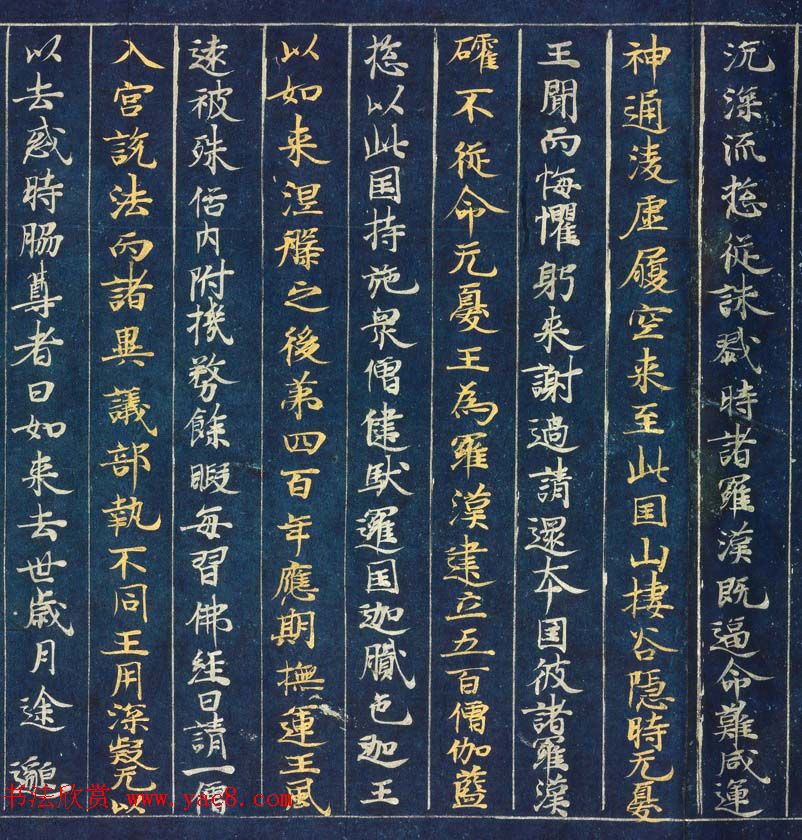 沉深流捴從誅戮時諸羅漢既逼命難咸運
神通淩虛履空来至此国山棲谷隱時无憂
王聞而悔懼躬来謝過請還本国彼諸羅漢
礭不從命无憂王為羅漢建立五百僧伽藍
捴以此国持施衆僧健馱邏国迦膩色迦王
以如来涅槃之後第四百年應期撫運王風
遠被殊俗内附機務餘暇每習佛經日請一僧
入宮說法而諸異議部執不同王用深疑无以
以去惑時脇尊者曰如来去世歲月途邈
书法欣赏 www.yac8.com